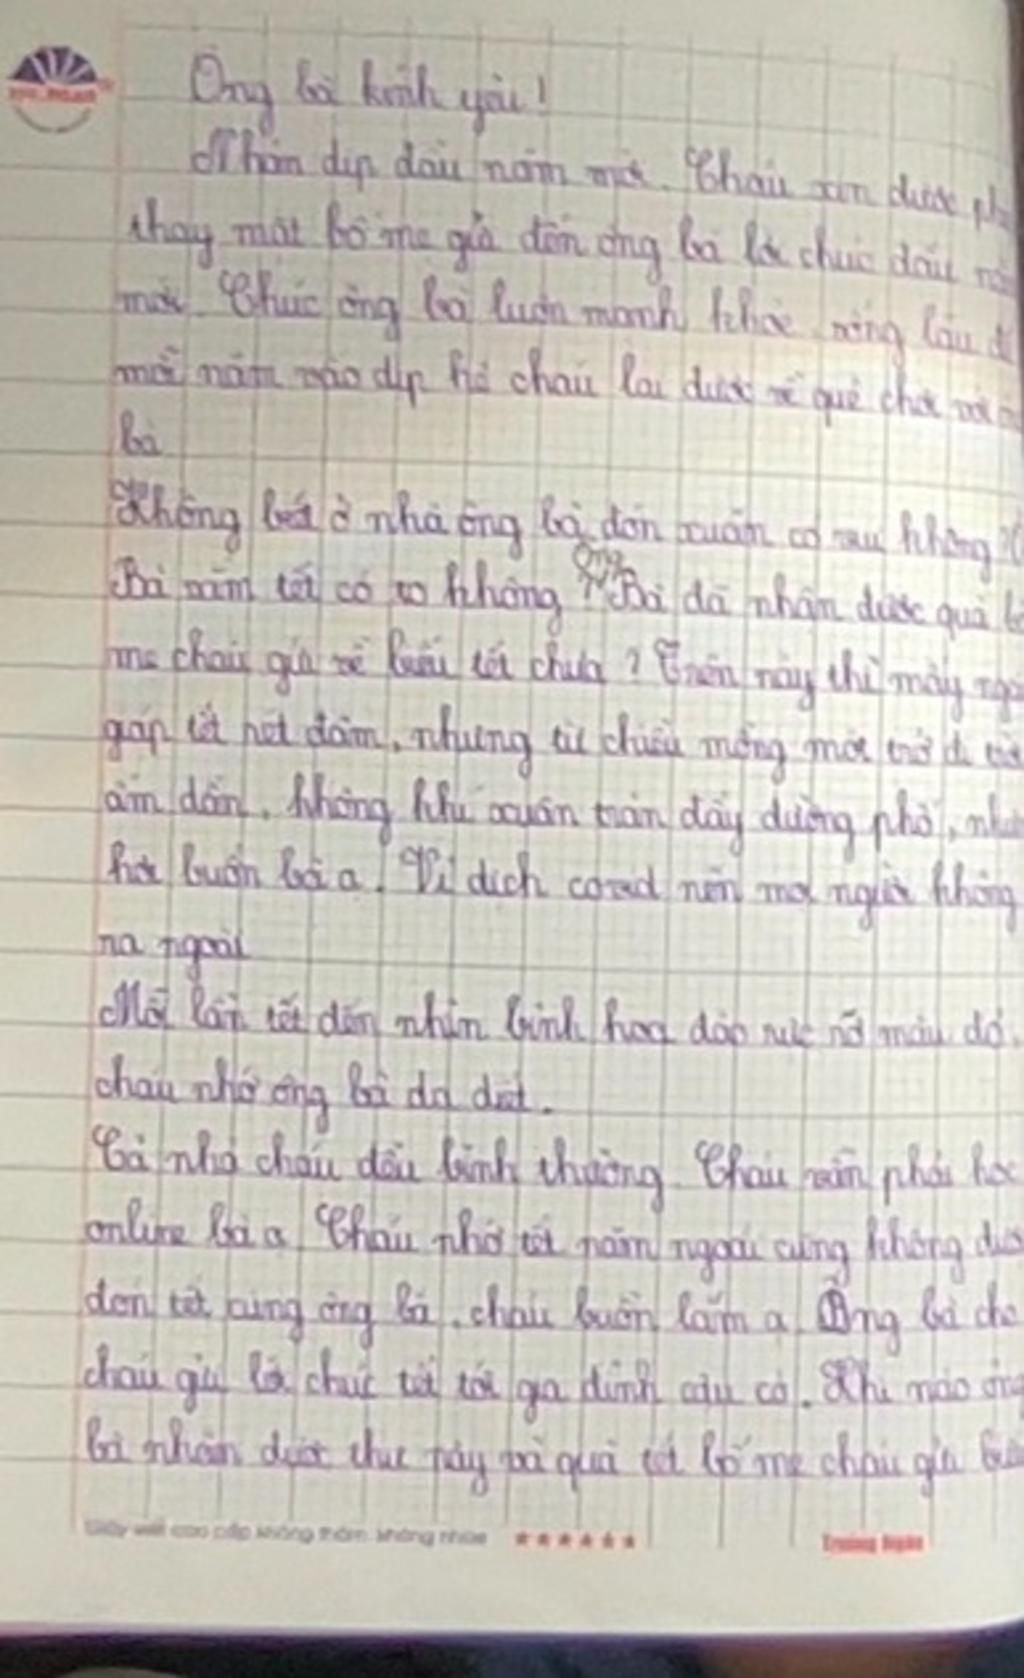 Ông bà kính yêu!
Nhân dịp đầu năm mới. Cháu xin được
thay mặt bố mẹ gửi đến ông bà lời chúc đầu
mới. Chúc ông bà luôn mạnh khỏe, sống lâu
mỗi năm vào dịp hè cháu lại được về quê chơi với
bà
Không biết ở nhà ông bà đón xuân có vui không?
Bà năm tết có to không? Ông Bà đã nhận được quà
mẹ cháu gửi về biếu tết chưa? Trên này thì mấy
giáp tết rét đậm, nhưng từ chiều mồng một trở đi
ấm dần, không khí xuân tràn đầy đường phố,
hơi buồn bà ạ. Vì dịch covid nên mọi người không
ra ngoài
Mỗi lần tết đến nhìn bình hoa đào rực rỡ màu đỏ,
cháu nhớ ông bà da diết.
Cả nhà cháu đều bình thường. Cháu vẫn phải học
online bà ạ. Cháu nhớ tết năm ngoái cũng không
đón tết cùng ông bà, cháu buồn lắm ạ. Ông bà cho
cháu gửi lời chúc tết tới gia đình cậu cả. Khi nào
bà nhận được thư này và quà tết bố mẹ cháu gửi
Giấy viết cao cấp không thấm, không nhòe
Trường Ngân